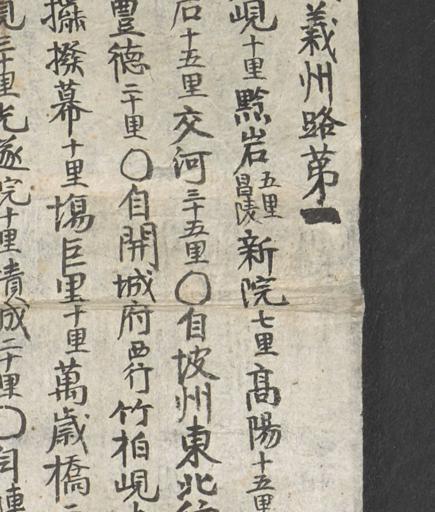 義州路第一
峴十里黔岩五里昌陵新院七里高陽十五里
石十五里交河三十五里〇自坡州東北行
豊德二十里〇自開城府西行竹栢峴
撥幕十里塲巨里十里萬歲橋二
峴三十里兎遂院十里積成二十里〇自